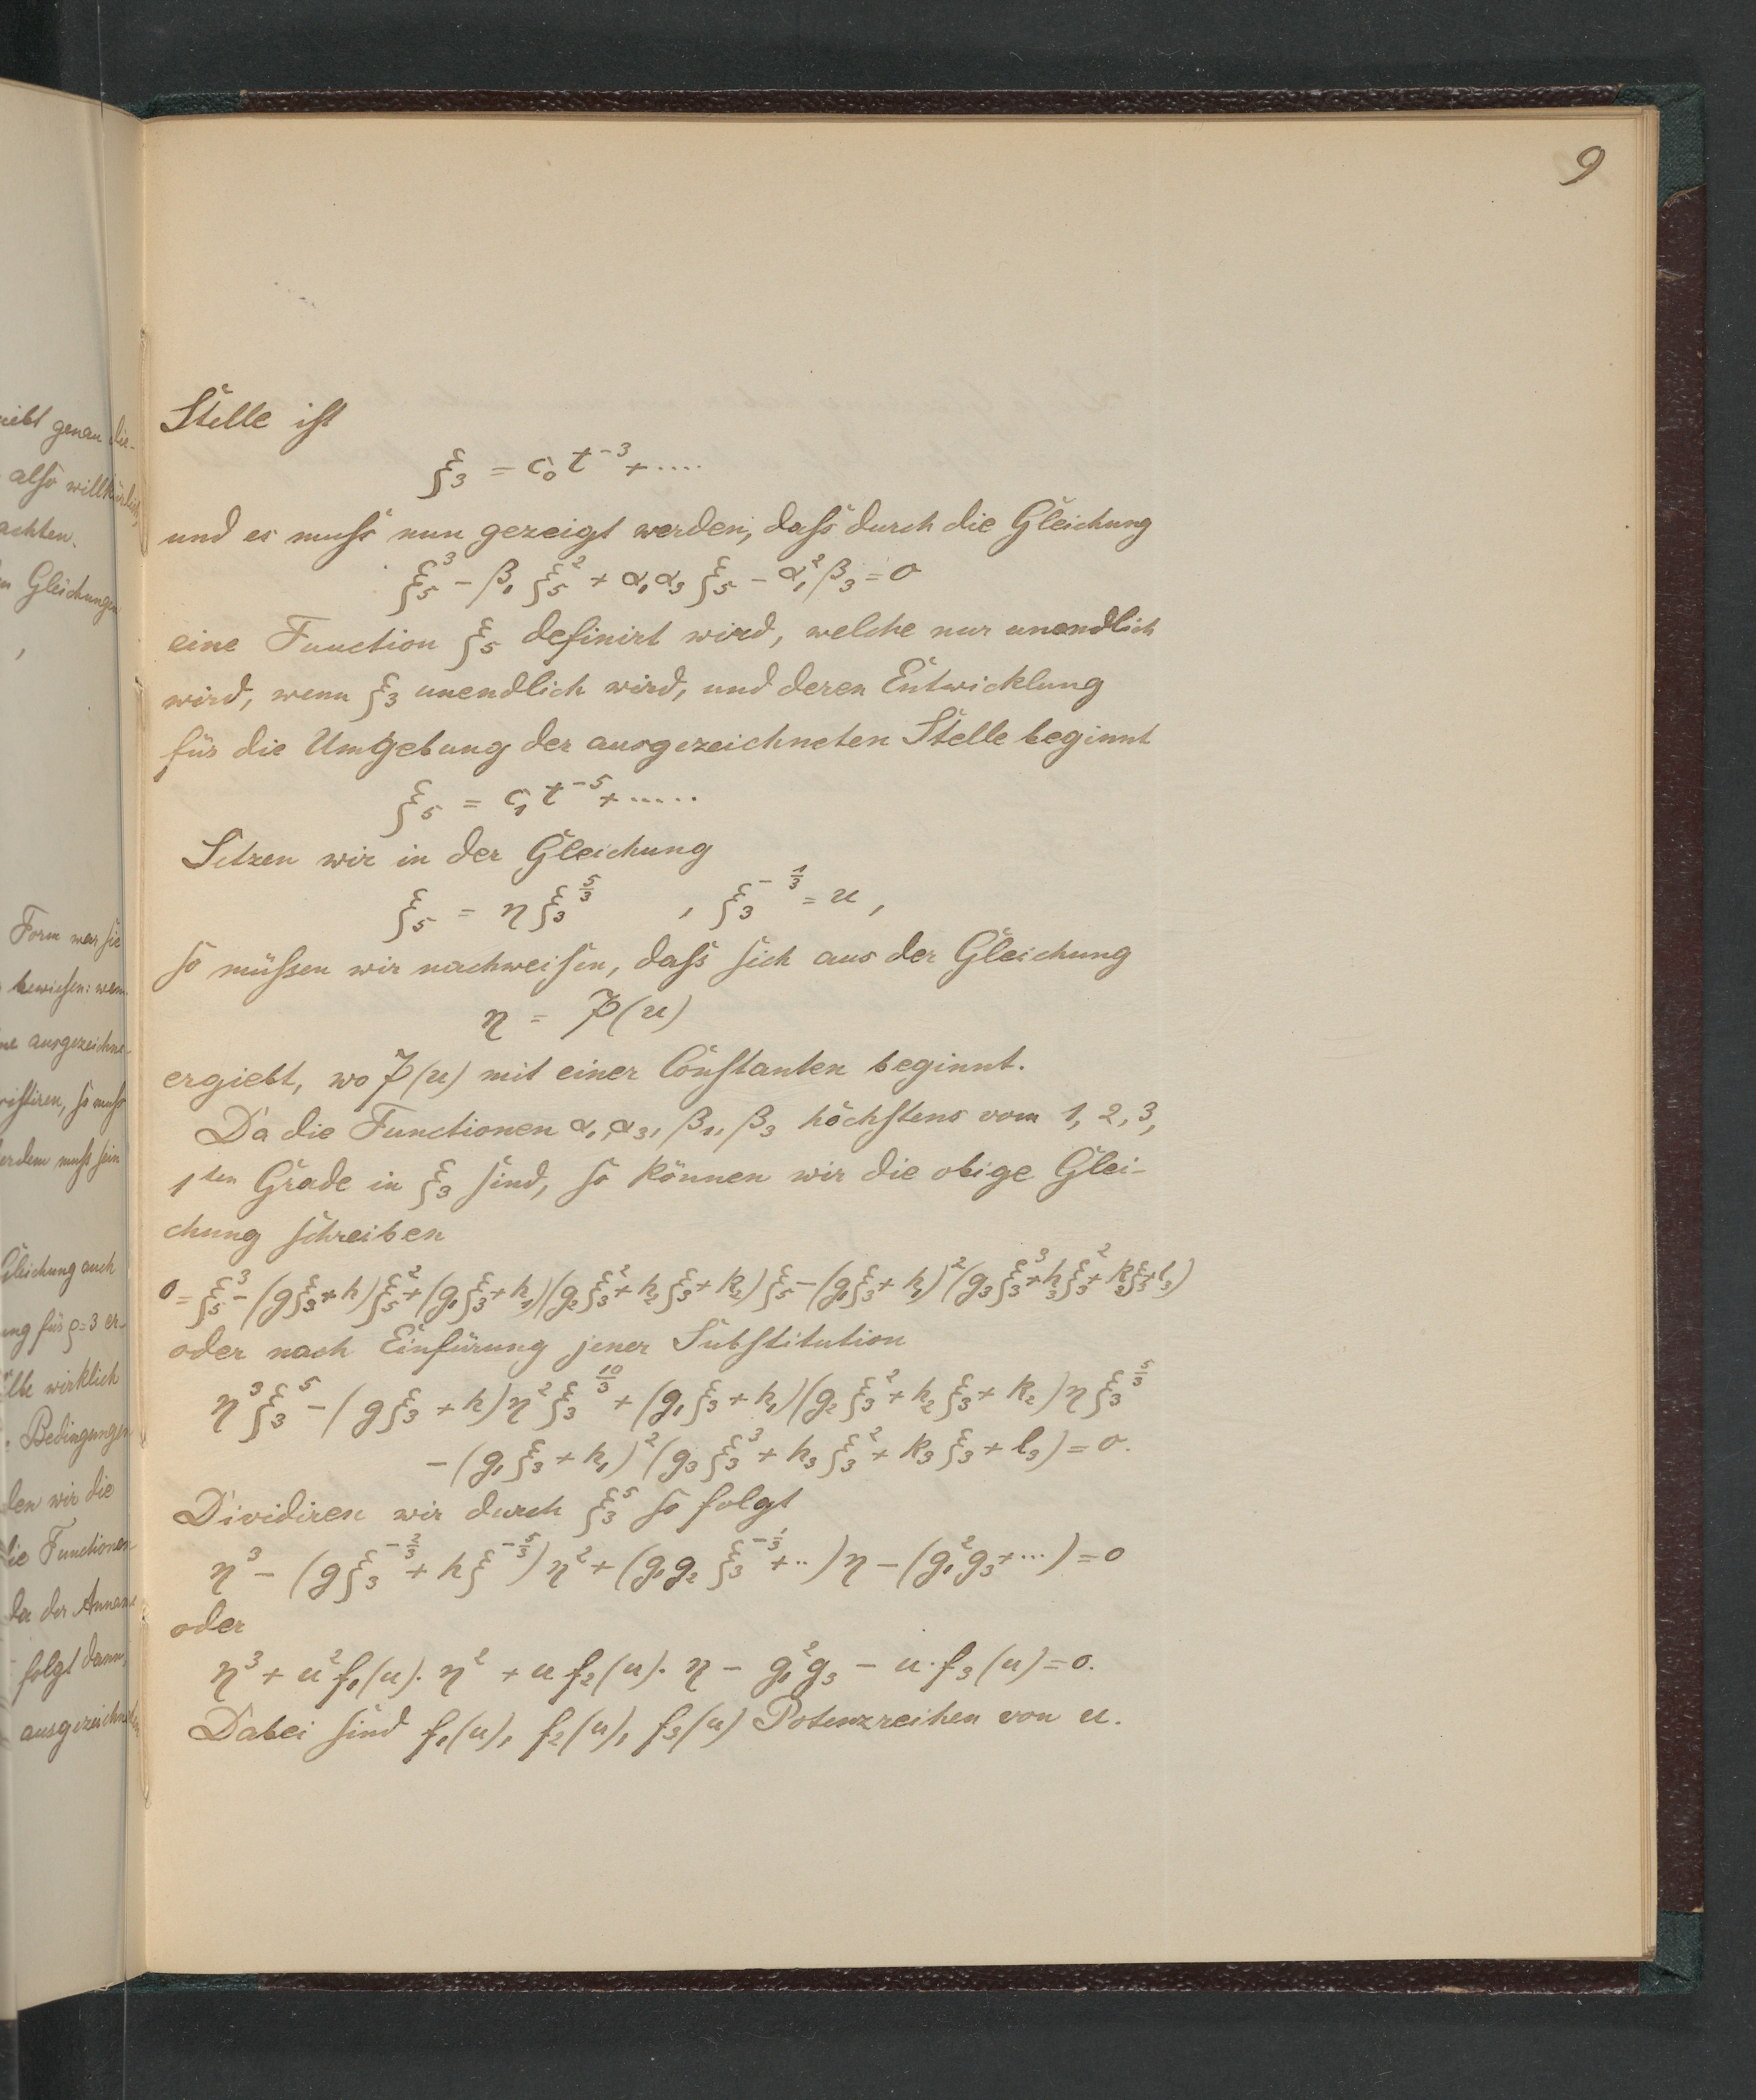 9
Stelle ist
ξ₃ = c₀ t⁻³ + ....
und es muſs nun gezeigt werden, daſs durch die Gleichung
ξ₅³ − β₁ ξ₅² + α₁ α₃ ξ₅ − α₁² β₃ = 0
eine Function ξ₅ definirt wird, welche nur unendlich
wird, wenn ξ₃ unendlich wird, und deren Entwicklung
für die Umgebung der ausgezeichneten Stelle beginnt
ξ₅ = c₁ t⁻⁵ + .....
Setzen wir in der Gleichung
ξ₅ = η ξ₃^{5/3} , ξ₃^{−1/3} = u ,
so müſsen wir nachweisen, daſs sich aus der Gleichung
η = P(u)
ergiebt, wo P(u) mit einer Constanten beginnt.
Da die Functionen α₁, α₃, β₁, β₃ höchstens vom 1, 2, 3,
1ten Grade in ξ₃ sind, so können wir die obige Glei-
chung schreiben
0 = ξ₅³ − (gξ₃ + h)ξ₅² + (g₁ξ₃ + h₁)(g₂ξ₃² + h₂ξ₃ + k₂)ξ₅ − (g₁ξ₃ + h₁)²(g₃ξ₃³ + h₃ξ₃² + k₃ξ₃ + l₃)
oder nach Einfürung jener Substitution
η³ξ₃⁵ − (gξ₃ + h)η²ξ₃^{10/3} + (g₁ξ₃ + h₁)(g₂ξ₃² + h₂ξ₃ + k₂)ηξ₃^{5/3}
− (g₁ξ₃ + h₁)²(g₃ξ₃³ + h₃ξ₃² + k₃ξ₃ + l₃) = 0.
Dividiren wir durch ξ₃⁵ so folgt
η³ − (gξ₃^{−2/3} + hξ^{−5/3})η² + (g₁g₂ξ₃^{−1/3} + ..)η − (g₁²g₃ + ...) = 0
oder
η³ + u²f₁(u). η² + u f₂(u). η − g₁²g₃ − u.f₃(u) = 0.
Dabei sind f₁(u), f₂(u), f₃(u) Potenzreihen von u.